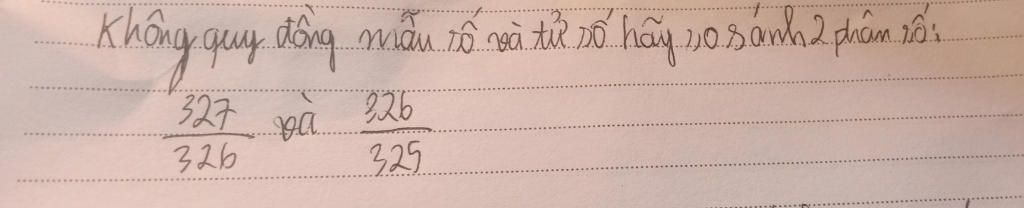 Không quy đồng mẫu số và tử số hãy so sánh 2 phân số:
327/326 và 326/325